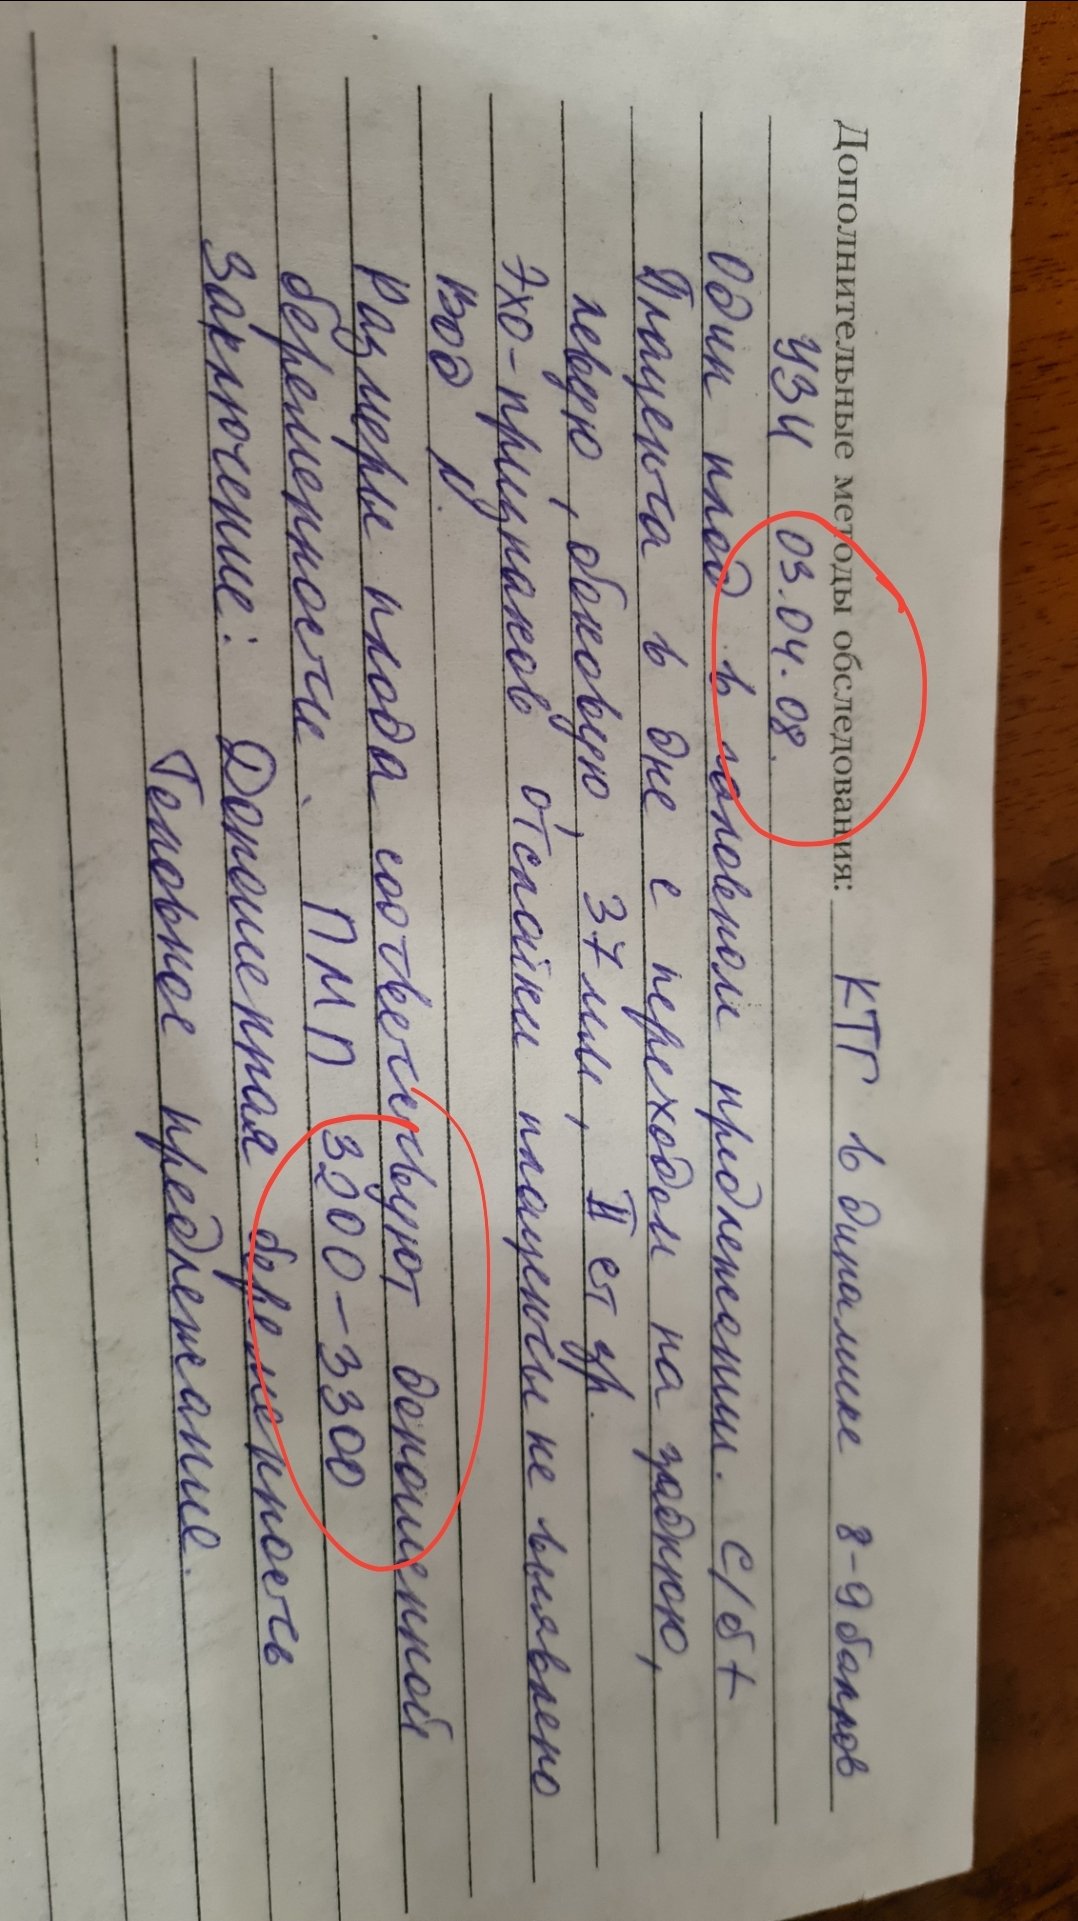 Дополнительные методы обследования: КТГ в динамике 8-9 баллов
УЗИ 03.04.08.
Один плод в головном предлежании. С/б +
Плацента в дне с переходом на заднюю,
левую, боковую, 37мм, II ст зр.
Эхо-признаков отслойки плаценты не выявлено
Вод N.
Размеры плода соответствуют доношенной
беременности. ПМП 3200-3300
Заключение: Доношенная беременность
Головное предлежание.